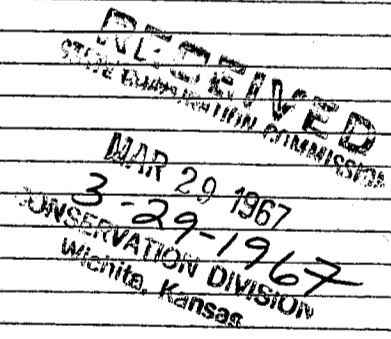 RECEIVED
STATE CORPORATION COMMISSION
MAR 29 1967
3-29-1967
CONSERVATION DIVISION
Wichita, Kansas